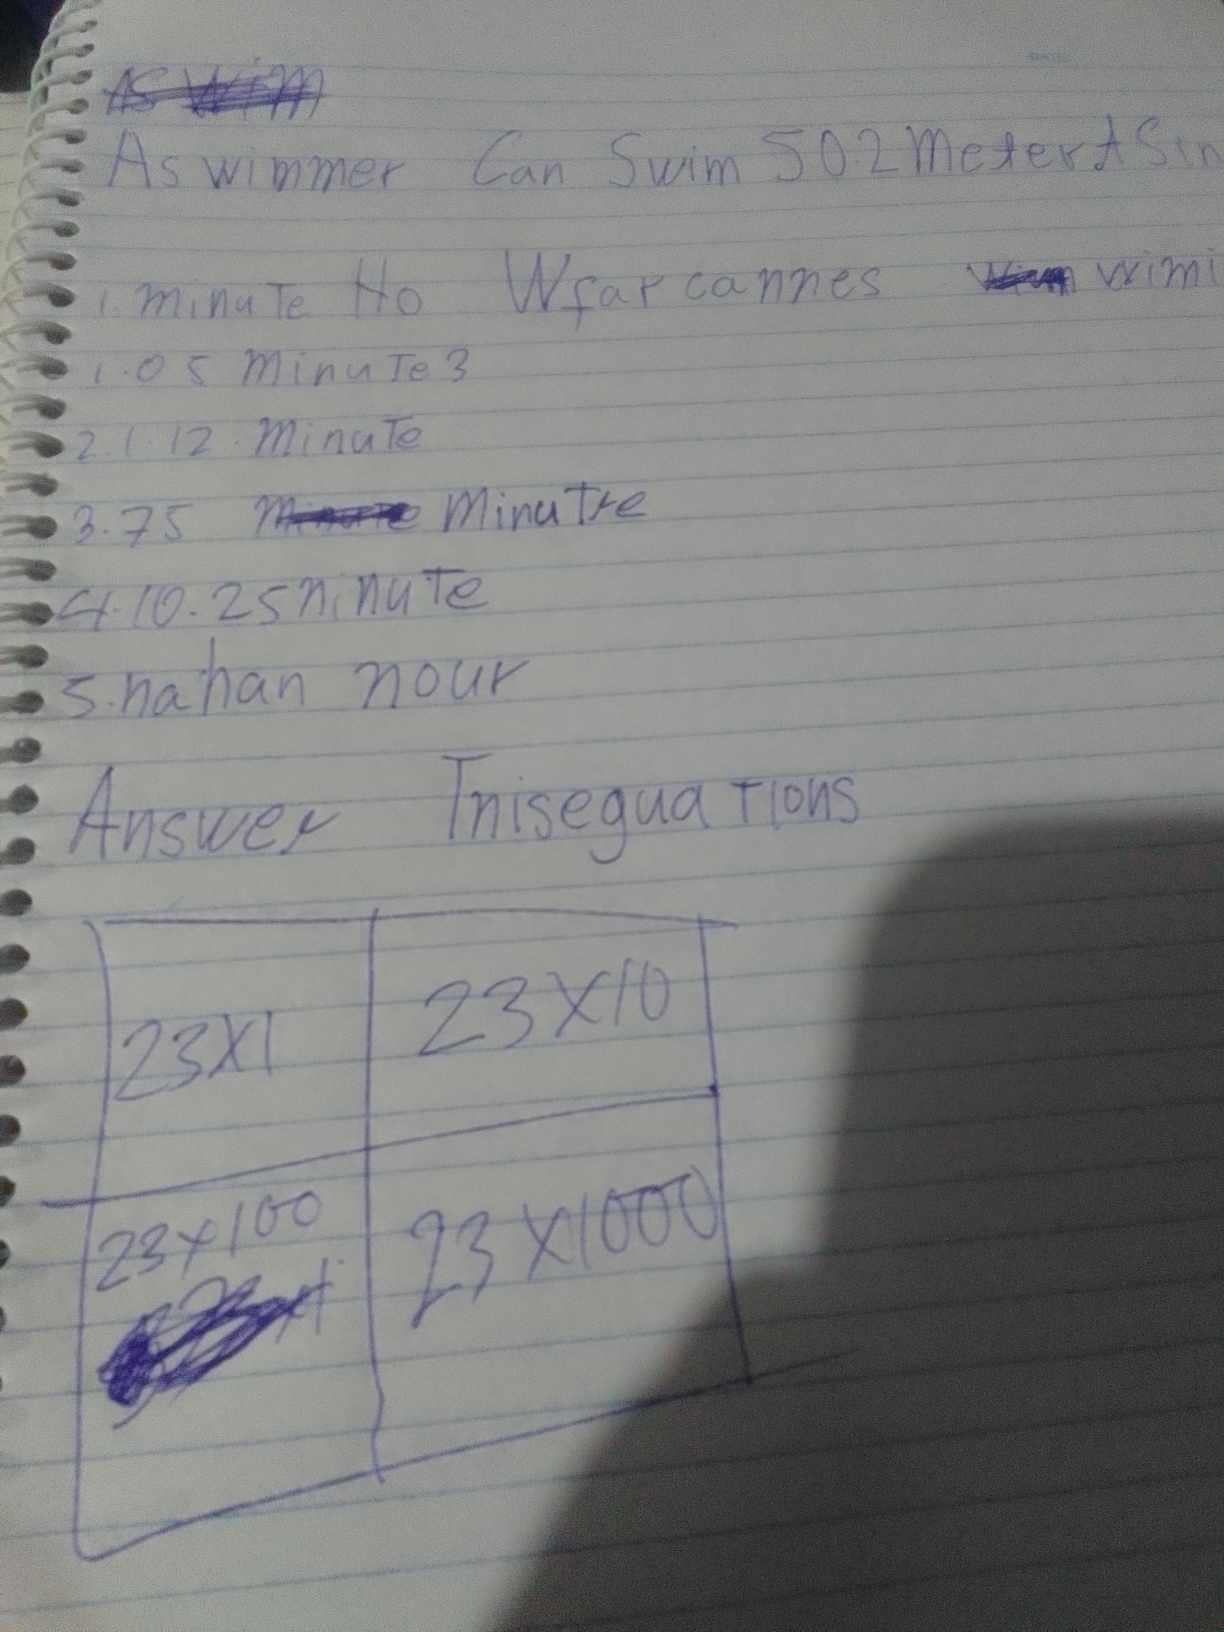 As wimmer Can Swim 50.2 Meter A Sin
1. minute Ho Wfar cannes wimi
1.05 Minute 3
2.1.12. Minute
3.75 Minutre
4.10.25 ninute
5.hahan nour
Answer Tniseguations
23X1 23X10
23x100 23X1000